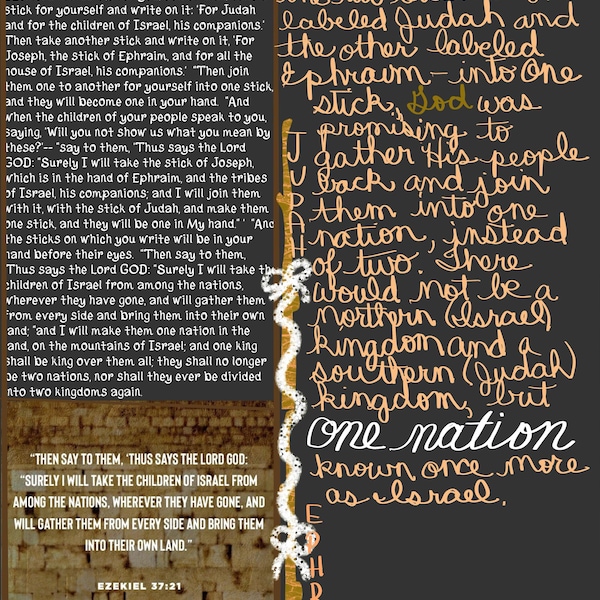 stick for yourself and write on it: 'For Judah
and for the children of Israel, his companions.'
Then take another stick and write on it, 'For
Joseph, the stick of Ephraim, and for all the
house of Israel, his companions.' "Then join
them one to another for yourself into one stick,
and they will become one in your hand. "And
when the children of your people speak to you,
saying, 'Will you not show us what you mean by
these?'-- "say to them, 'Thus says the Lord
GOD: "Surely I will take the stick of Joseph,
which is in the hand of Ephraim, and the tribes
of Israel, his companions; and I will join them
with it, with the stick of Judah, and make them
one stick, and they will be one in My hand." ' "And
the sticks on which you write will be in your
hand before their eyes. "Then say to them,
'Thus says the Lord GOD: "Surely I will take the
children of Israel from among the nations,
wherever they have gone, and will gather them
from every side and bring them into their own
land; "and I will make them one nation in the
land, on the mountains of Israel; and one king
shall be king over them all; they shall no longer
be two nations, nor shall they ever be divided
into two kingdoms again.
"THEN SAY TO THEM, 'THUS SAYS THE LORD GOD:
"SURELY I WILL TAKE THE CHILDREN OF ISRAEL FROM
AMONG THE NATIONS, WHEREVER THEY HAVE GONE, AND
WILL GATHER THEM FROM EVERY SIDE AND BRING THEM
INTO THEIR OWN LAND."
EZEKIEL 37:21
JUDAH
EPHR
labeled Judah and
the other labeled
Ephraim – into one
stick, God was
promising to
gather His people
back and join
them into one
nation, instead
of two. There
would not be a
northern (Israel)
kingdom and a
southern (Judah)
kingdom, but
one nation
known once more
as Israel.